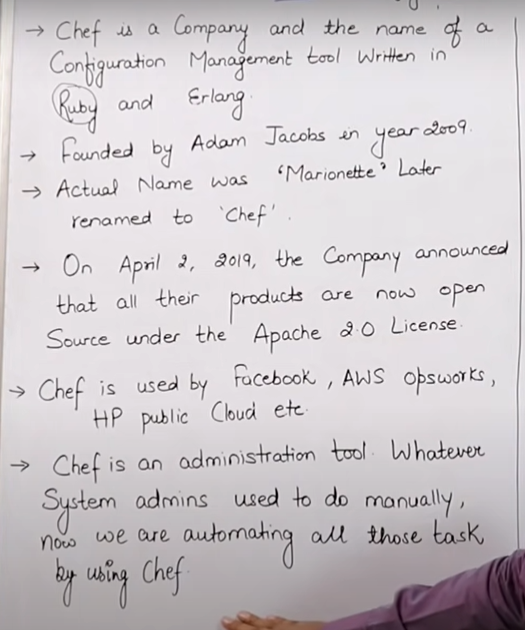 → Chef is a Company and the name of a
Configuration Management tool Written in
Ruby and Erlang.
→ Founded by Adam Jacobs in year 2009.
→ Actual Name was 'Marionette' Later
renamed to 'Chef'.
→ On April 2, 2019, the Company announced
that all their products are now open
Source under the Apache 2.0 License.
→ Chef is used by Facebook, AWS Opsworks,
HP public Cloud etc.
→ Chef is an administration tool. Whatever
System admins used to do manually,
now we are automating all those task
by using Chef.